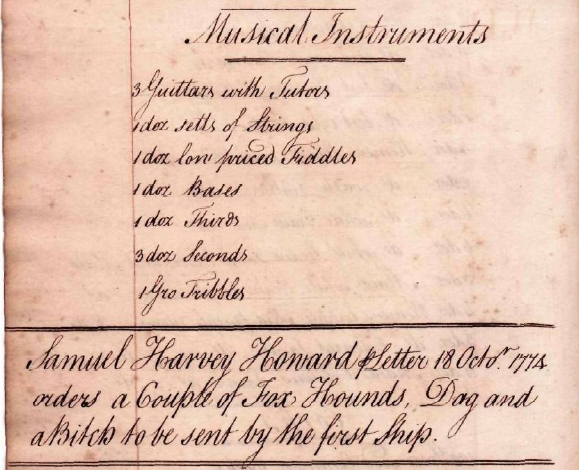 Musical Instruments
3 Guittars with Tutors
1 doz setts of Strings
1 doz low priced Fiddles
1 doz Bases
1 doz Thirds
3 doz Seconds
1 Gro Tribbles
Samuel Harvey Howard ⅌ Letter 18 Octor. 1774
orders a Couple of Fox Hounds, Dog and
a Bitch to be sent by the first Ship.